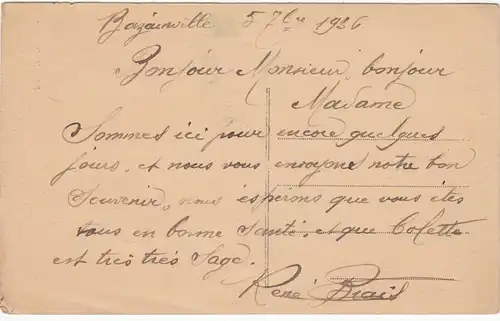 Bazainville 5 7bre 1936
Bonjour Monsieur, bonjour
Madame
Sommes ici pour encore quelques
jours, et nous vous envoyons notre bon
Souvenir, nous esperons que vous êtes
tous en bonne Santé, et que Colette
est très très Sage.
René